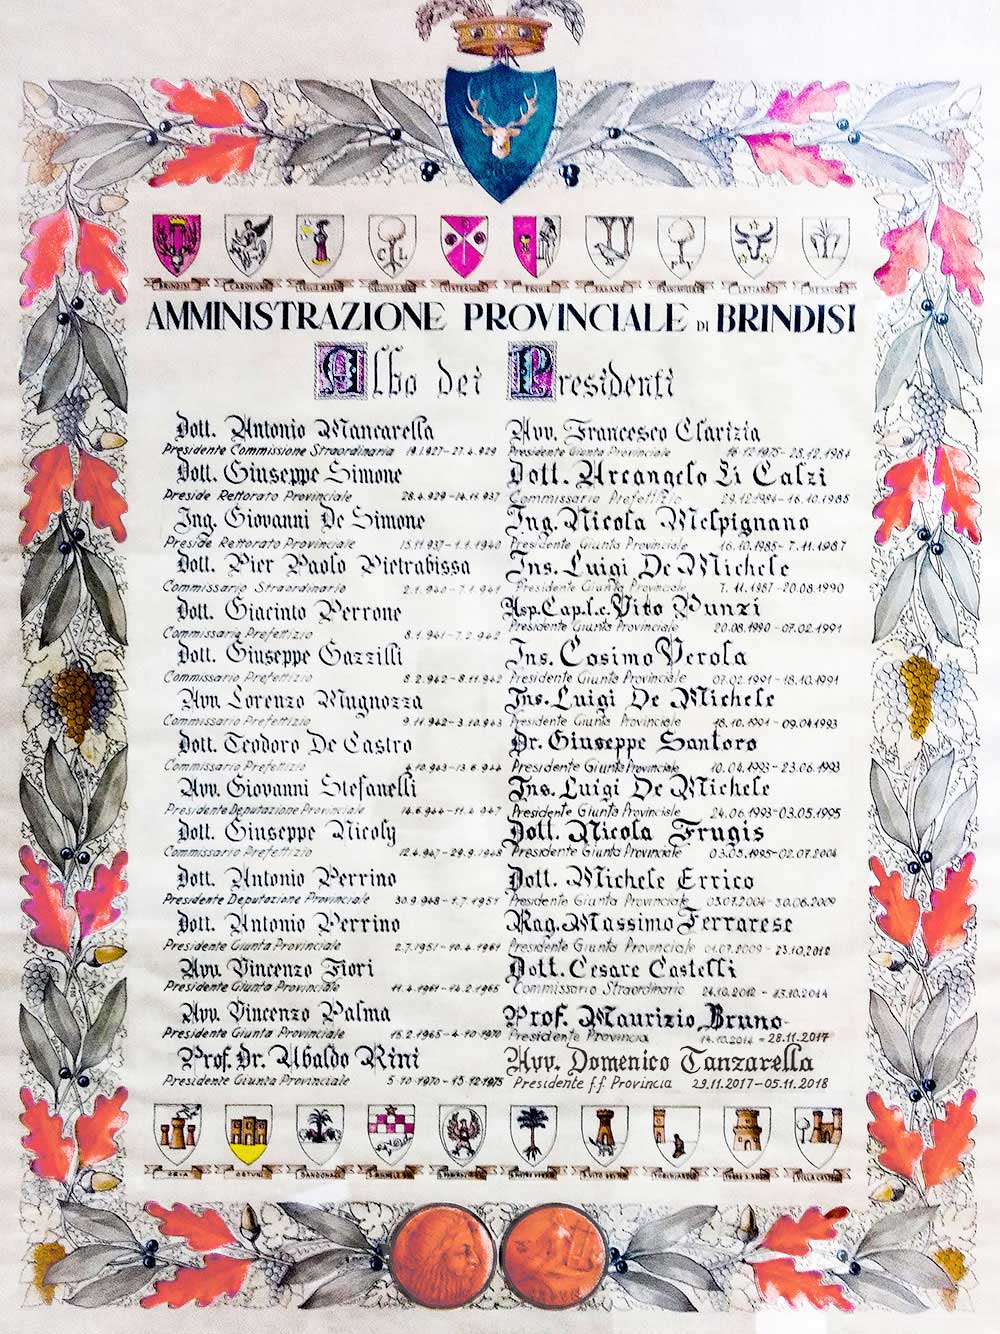 BRINDISI CAROVIGNO CEGLIE MESS. CELLINO S.M. CISTERNINO ERCHIE FASANO FRANCAVILLA LATIANO MESAGNE
AMMINISTRAZIONE PROVINCIALE DI BRINDISI
Albo dei Presidenti
Dott. Antonio Mancarella
Presidente Commissione Straordinaria 19.1.927-27.4.929
Dott. Giuseppe Simone
Preside Rettorato Provinciale 28.4.929-14.11.937
Ing. Giovanni De Simone
Preside Rettorato Provinciale 15.11.937-1.1.1940
Dott. Pier Paolo Pietrabissa
Commissario Straordinario 2.1.940-7.1.941
Dott. Giacinto Perrone
Commissario Prefettizio 8.1.941-7.2.942
Dott. Giuseppe Gazzilli
Commissario Prefettizio 8.2.942-8.11.942
Avv. Lorenzo Mugnozza
Commissario Prefettizio 9.11.942-3.10.943
Dott. Teodoro De Castro
Commissario Prefettizio 4.10.943-13.6.944
Avv. Giovanni Stefanelli
Presidente Deputazione Provinciale 14.6.944-11.4.947
Dott. Giuseppe Nicoly
Commissario Prefettizio 12.4.947-29.9.1948
Dott. Antonio Perrino
Presidente Deputazione Provinciale 30.9.948-1.7.1951
Dott. Antonio Perrino
Presidente Giunta Provinciale 2.7.1951-10.4.1961
Avv. Vincenzo Fiori
Presidente Giunta Provinciale 11.4.1961-14.2.1965
Avv. Vincenzo Palma
Presidente Giunta Provinciale 15.2.1965-4.10.1970
Prof. Dr. Ubaldo Rini
Presidente Giunta Provinciale 5.10.1970-15.12.1975
Avv. Francesco Clarizia
Presidente Giunta Provinciale 16.12.1975-28.12.1984
Dott. Arcangelo Li Calzi
Commissario Prefettizio 29.12.1984-16.10.1985
Ing. Nicola Melpignano
Presidente Giunta Provinciale 16.10.1985-7.11.1987
Ins. Luigi De Michele
Presidente Giunta Provinciale 7.11.1987-20.08.1990
Asp.Cap.l.c. Vito Punzi
Presidente Giunta Provinciale 20.08.1990-07.02.1991
Ins. Cosimo Verola
Presidente Giunta Provinciale 07.02.1991-18.10.1991
Ins. Luigi De Michele
Presidente Giunta Provinciale 18.10.1991-09.04.1993
Dr. Giuseppe Santoro
Presidente Giunta Provinciale 10.04.1993-23.06.1993
Ins. Luigi De Michele
Presidente Giunta Provinciale 24.06.1993-03.05.1995
Dott. Nicola Frugis
Presidente Giunta Provinciale 03.05.1995-02.07.2004
Dott. Michele Errico
Presidente Giunta Provinciale 03.07.2004-30.06.2009
Rag. Massimo Ferrarese
Presidente Giunta Provinciale 01.07.2009-23.10.2012
Dott. Cesare Castelli
Commissario Straordinario 24.10.2012-13.10.2014
Prof. Maurizio Bruno
Presidente Provincia 14.10.2014-28.11.2017
Avv. Domenico Tanzarella
Presidente f.f. Provincia 29.11.2017-05.11.2018
ORIA OSTUNI S.DONACI S.MICHELE S. S.PANCRAZIO S.PIETRO VERN. S.VITO DEI NOR. TORCHIAROLO TORRE S.SUS. VILLA CASTELLI